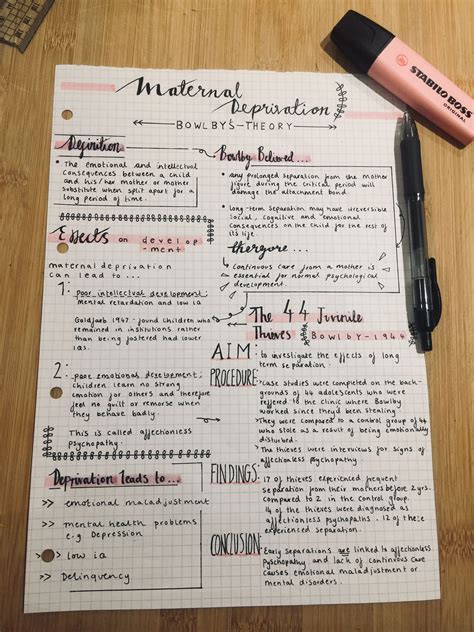 Maternal
Deprivation
BOWLBY'S-THEORY
Definition
• The emotional and intellectual
consequences between a child
and his/her mother or mother
substitute when split apart for a
long period of time.
Bowlby Believed...
• any prolonged separation from the mother
figure during the critical period will
damage the attachment bond.
• Long-term separation may have irreversible
social, cognitive and emotional
consequences on the child for the rest of
its life
thergore...
Continuous care from a mother is
essential for normal psychological
development.
Effects on develop
-ment
maternal deprivation
can lead to...
1: poor intellectual development;
mental retardation and low iq
Goldfarb 1947 - found children who
remained in institutions rather
than being fostered had lower
iqs.
2: poor emotional development;
children learn no strong
emotion for others and therefore
feel no guilt or remorse when
they behave badly.
This is called affectionless
psychopathy.
Deprivation leads to...
>> emotional maladjustment
>> mental health problems
e.g Depression
>> low iq
>> Delinquency
The 44 Juvenile
Thieves Bowlby-1944
AIM:
• to investigate the effects of long
term separation.
PROCEDURE:
• case studies were completed on the back-
grounds of 44 adolescents who were
referred to the clinic where Bowlby
worked since they'd been stealing.
• They were compared to a control group of 44
who stole as a result of being emotionally
disturbed.
• The thieves were interviews for signs of
affectionless psychopathy.
FINDINGS:
17 of thieves experienced frequent
separation from their mothers before 2 yrs.
Compared to 2 in the control group.
14 of the thieves were diagnosed as
affectionless psychopaths. 12 of these
experienced separation.
CONCLUSION:
Early separations are linked to affectionless
Pyschopathy and lack of continuous care
causes emotional maladjustment or
mental disorders.
STABILO BOSS
ORIGINAL